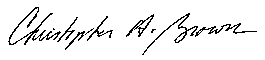 Christopher A. Brown